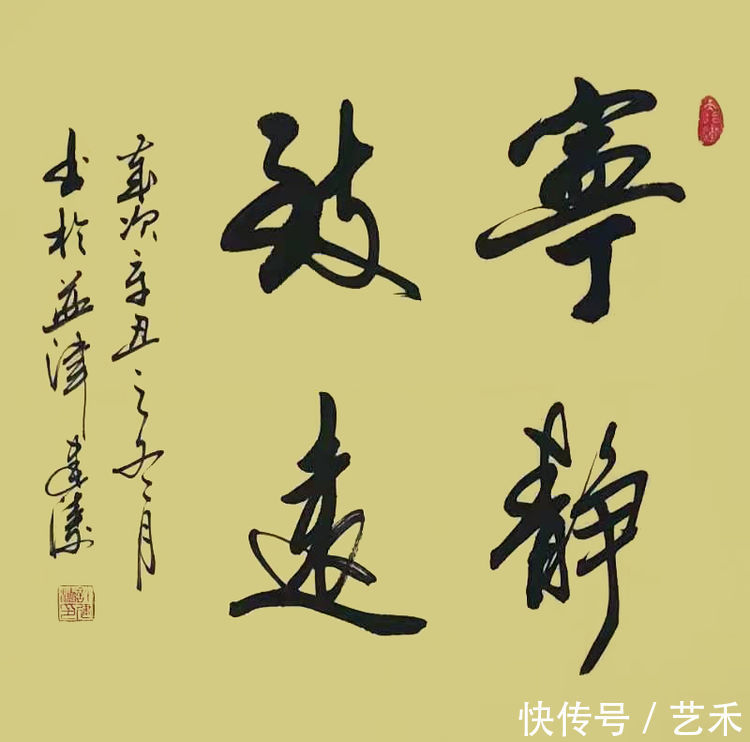 寧靜
致遠
歲次辛丑之冬月
书於益津
快传号 / 艺禾